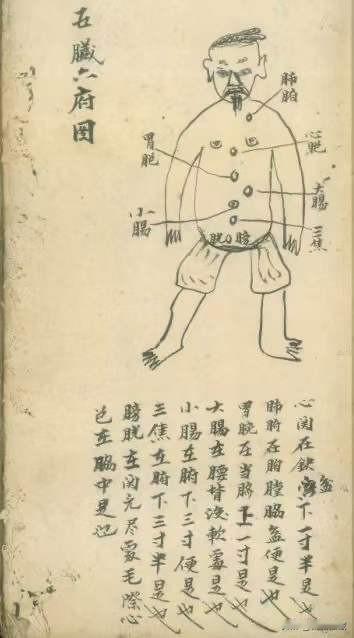 五臟六府圖
肺胕
心䏶
胃脘
大腸
小腸
三焦
膀胱
心図在鈌盆下一寸半是也
肺胕在胸膛脇盆便是也
胃脘在当臍上一寸是也
大腸在腰背後軟處是也
小腸在腑下三寸便是也
三焦在腑下三寸半是也
膀胱在関元尽處毛際心
包在脇中是也